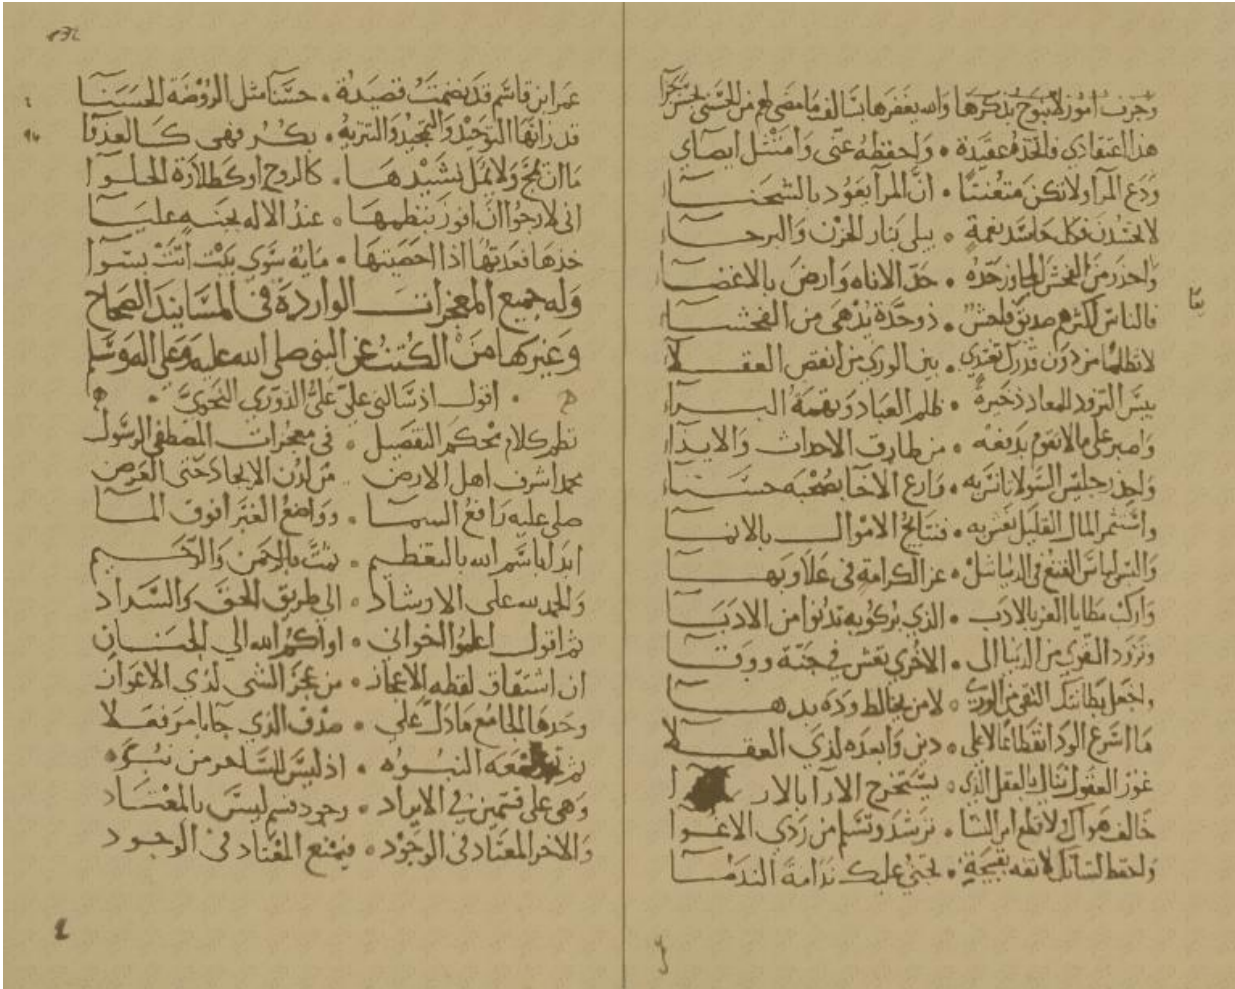 وجرت أمور لا نبوح بذكرها والله يغفرها
هذا اعتقادي فالخذه عقيدة • واحفظه عني وامتثل ايصاي
ودع المرآ ولا تكن متعنتا • ان المرآ يعود بالشحنآ
لا تحسدن فكل حاسد نعمة • يبلى بنار الحزن والبرحآ
واحذر من الفحش • حد الاناه وارض بالاغضآ
فالناس اكثرهم صديق فاحش • ذو حدة بذهي من الفحشآ
لا تظلما من دون قدرك تغتدي • بين الوري من انقص العقلآ
بيس التزود للمعاد ذخيرة • ظلم العباد ونقمة البرآء
واصبر على مالا تقوم بدفعه • من طارق الاحداث والايذآ
واحذر جليس السو لا باثر به • وارع الاخا بصحبه حسنآء
واستثمر المال القليل • فنتايج الاموال بالانمآ
والبس لباس القنع في الدنيا تنل • عز الكرامة في علا وبهآ
واركب مطايا العز بالادب • الذي يزكو به تدنوا من الادبآ
وتزود التقوى من الدنيا الى • الاخرى تعش في جنة ووقآ
واجعل بطانتك التقي من الورى • لا من يخالط وده بدهآ
ما اسرع الود انقطاعا لا علي • دين وابعده لذي العقلآ
غوز العقول بذلك العقل الذي • يستخرج الارآ بالار
خالف هواك ولا تطع امر النسا • ترشد وتسلم من ردي الاغوآ
واحفظ لسانك لا تفه بقبيحة • تجني عليك ندامة الندمآ
عمر ابن قاسم قد نضمت قصيدة • حسنآ مثل الروضة الحسنآ
قد زانها التوحيد والتمجيد والتنزيه • بكر فهي كالعذرا
ما ان تمج ولا تمل نشيدها • كالروح او كطلاوة الحلوآ
اني لارجوا ان افوز بنظمها • عند الاله بجنه عليآ
خذها فعدتها اذا احصيتها • مايه سوى بيت اتت بسوآ
وله جميع المعجزات الواردة في المسانيد الصحاح
وغيرها من الكتب عن النبي صلى الله عليه وعلى اله وسلم
• اقول اذ سالني علي علي الدوري النحوي •
نظم كلام محكم التفصيل • في معجزات المصطفى الرسول
محمد اشرف اهل الارض • من لدن الايجاد حتى العرض
صلى عليه رافع السمآ • وواضع الغبرا فوق المآ
ابدا باسم الله بالتعظيم • ثمت بالرحمن والرحيم
والحمد لله على الارشاد • الى طريق الحق والسداد
ثم اقول اعلموا اخواني • اواكم الله الي الجنان
ان اشتقاق لفظه الاعجاز • من عجز الشي لذي الاعواز
وحدها الجامع ما دل على • صدق الذي جا بامر فعلا
ثم معه النبوه • اذ ليس للساحر من نبوه
وهي على قسمين في الايراد • وجود قسم ليس بالمعتاد
والاخر المعتاد في الوجود • فيمنع المعتاد في الوجود